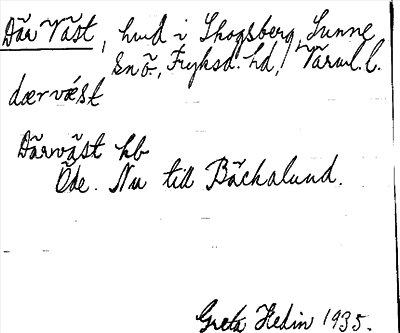 Där Väst, hmd i Skogsberg, Sunne
snö., Fryksd. hd, Värml. l.
dærvǽst
Därväst hb
Öde. Nu till Bäckalund.
Greta Hedin 1935.